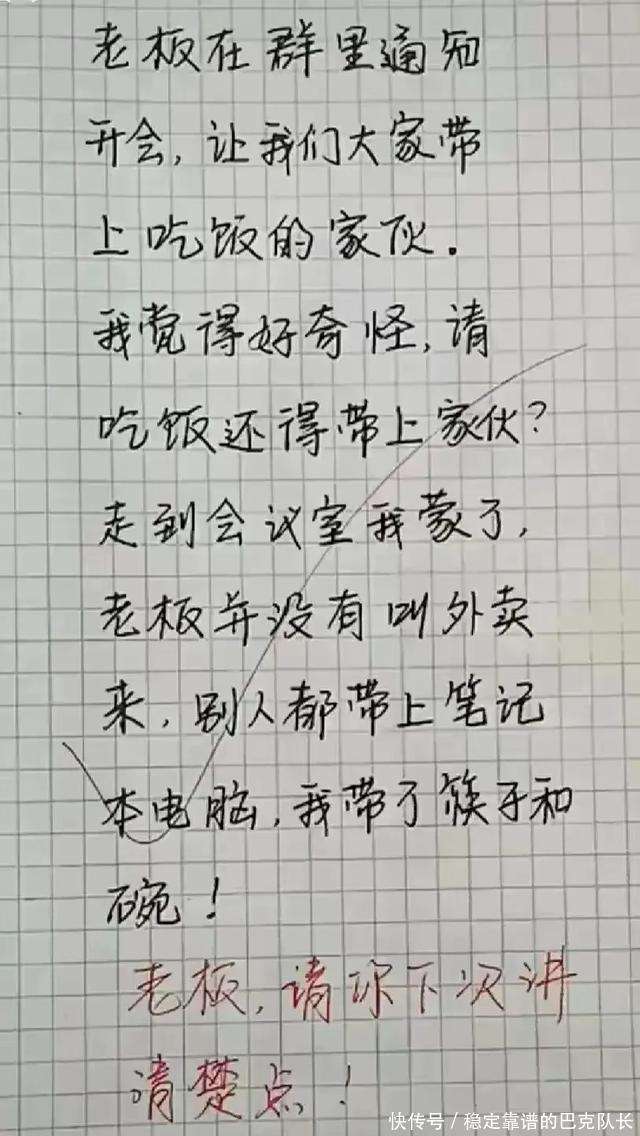 老板在群里通知
开会,让我们大家带
上吃饭的家伙.
我觉得好奇怪,请
吃饭还得带上家伙?
走到会议室我蒙了,
老板并没有叫外卖
来,别人都带上笔记
本电脑,我带了筷子和
碗!
老板,请你下次讲
清楚点!
快传号/稳定靠谱的巴克队长